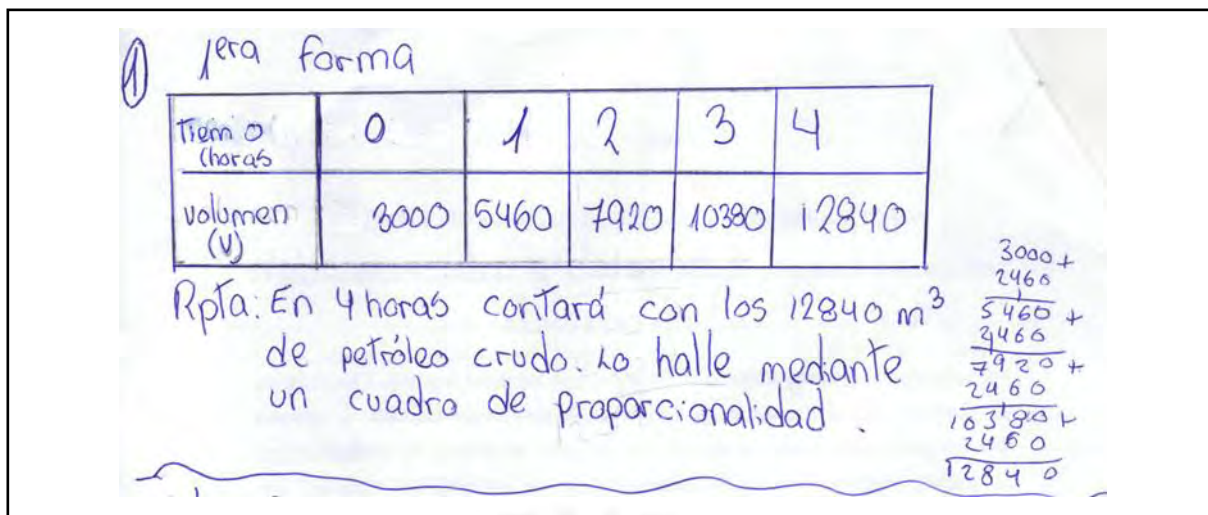 1 1era forma
Tiem o 0 1 2 3 4
(horas
volumen 3000 5460 7920 10380 12840
(V)
Rpta: En 4 horas contará con los 12840 m³
de petróleo crudo. Lo halle mediante
un cuadro de proporcionalidad.
3000 +
2460
5460 +
2460
7920 +
2460
10380 +
2460
12840